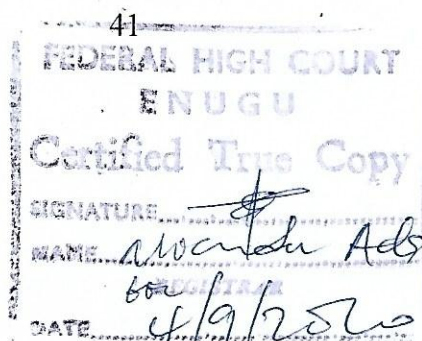 41
FEDERAL HIGH COURT
ENUGU
Certified True Copy
SIGNATURE
NAME
REGISTRAR
DATE 4/9/2020